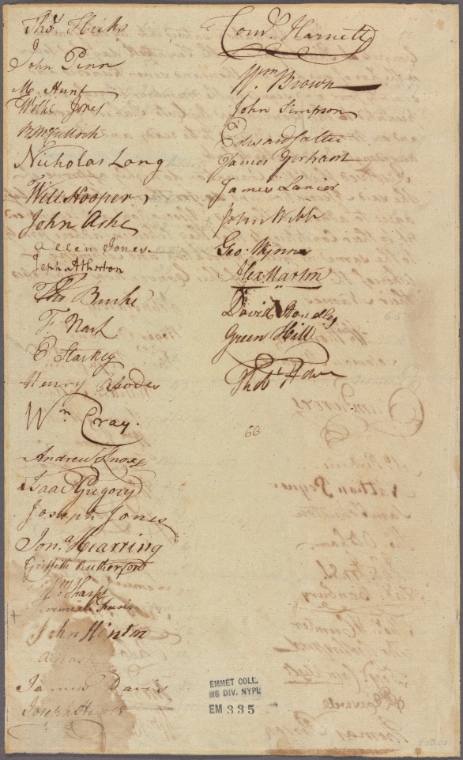 Thos Hicks
John Penn
M. Hunt
Willie Jones
Nicholas Long
Will Hooper
John Ashe
Allen Jones
Jeptha Atherton
Thos Burke
F. Nash
E Starkey
Henry Rhodes
Wm Cray.
Andrew Knox
Isaac Gregory
Joseph Jones
Jona Hearring
Griffith Rutherford
Wm Sharpe
John Hinton
James Davis
Joseph
Corns. Harnett
Wm Brown
John Simpson
Edward
James
James Lanier
John Webb
Geo: Wynns
Alex Martin
David Standley
Green Hill
Robt Howe
66
EMMET COLL.
MS DIV. NYPL
EM 335